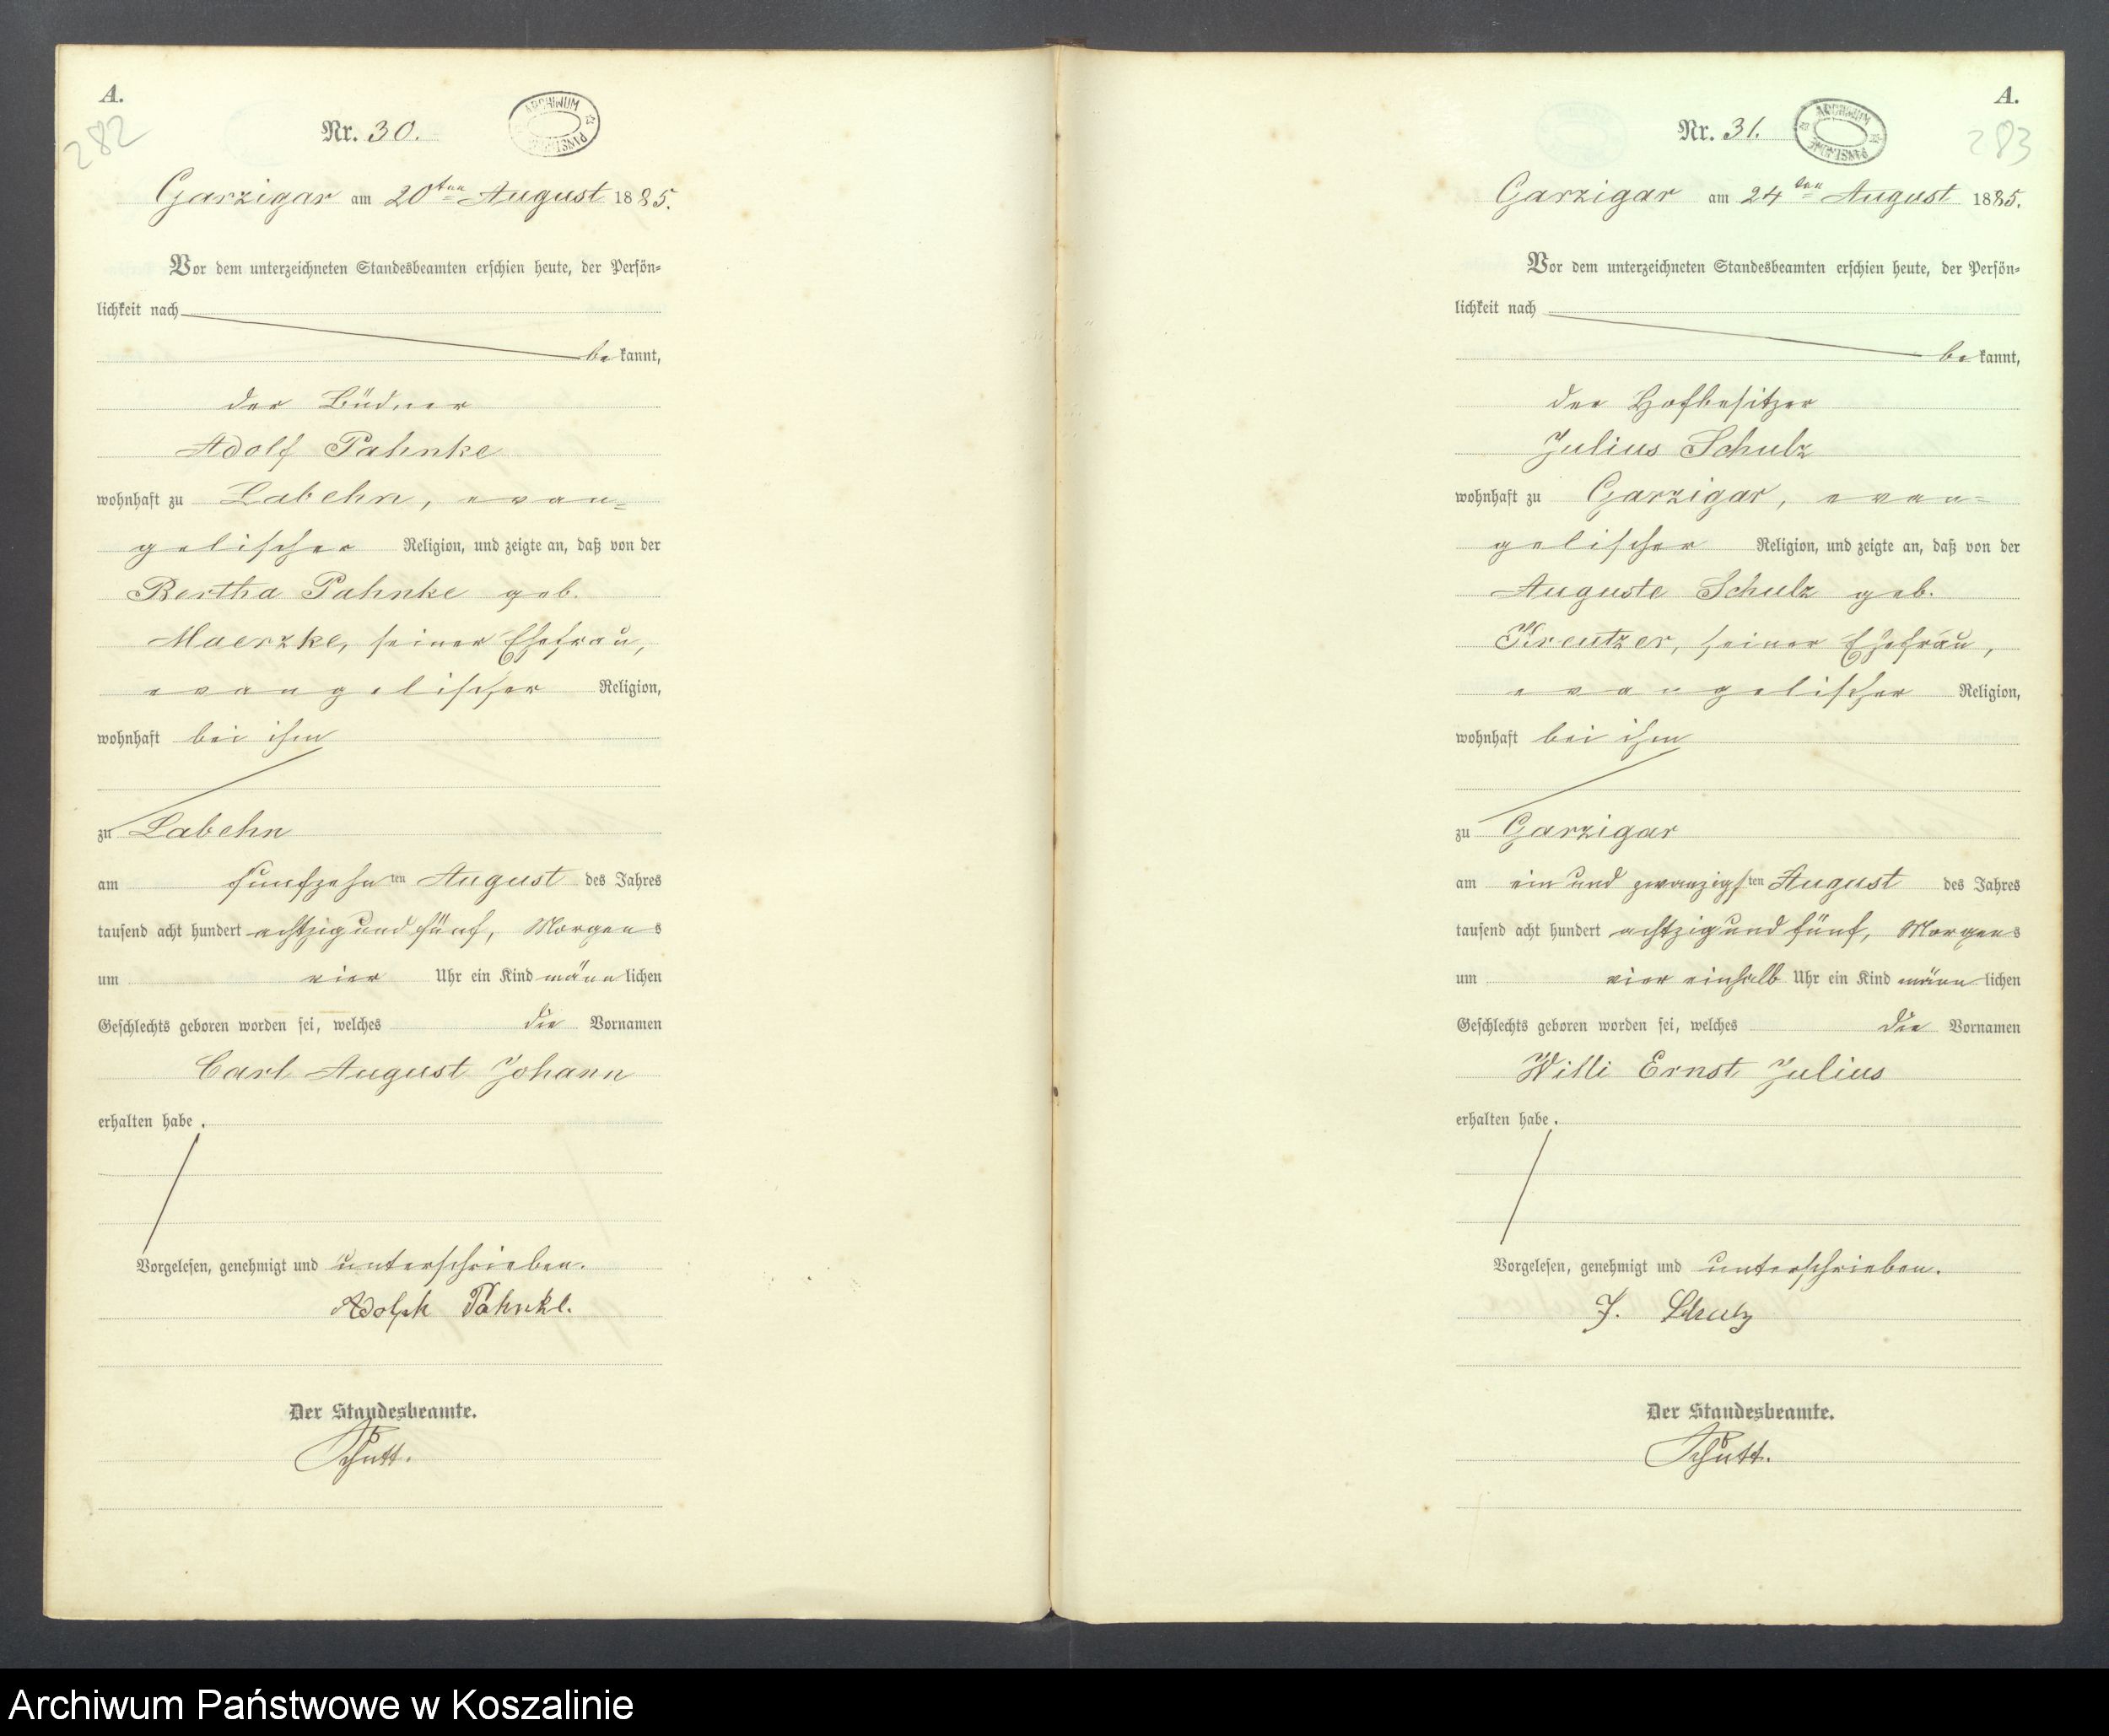 A.
282
Nr. 30.
ARCHIWUM PAŃSTWOWE
Garzigar am 20ten August 1885.
Vor dem unterzeichneten Standesbeamten erschien heute, der Persön-
lichkeit nach
be kannt,
der Büdner
Adolf Pahnke
wohnhaft zu Labehn, evan-
gelischer Religion, und zeigte an, daß von der
Bertha Pahnke geb.
Maerzke, seiner Ehefrau,
evangelischer Religion,
wohnhaft bei ihm
zu Labehn
am fünfzehnten August des Jahres
tausend acht hundert achtzig und fünf, Morgens
um vier Uhr ein Kind männlichen
Geschlechts geboren worden sei, welches die Vornamen
Carl August Johann
erhalten habe.
Vorgelesen, genehmigt und unterschrieben.
Adolph Pahnke.
Der Standesbeamte.
A.
283
Nr. 31.
ARCHIWUM PAŃSTWOWE
Garzigar am 24ten August 1885.
Vor dem unterzeichneten Standesbeamten erschien heute, der Persön-
lichkeit nach
be kannt,
der Hofbesitzer
Julius Schulz
wohnhaft zu Garzigar, evan-
gelischer Religion, und zeigte an, daß von der
Auguste Schulz geb.
Kreutzer, seiner Ehefrau,
evangelischer Religion,
wohnhaft bei ihm
zu Garzigar
am ein und zwanzigsten August des Jahres
tausend acht hundert achtzig und fünf, Morgens
um vier einhalb Uhr ein Kind männlichen
Geschlechts geboren worden sei, welches die Vornamen
Willi Ernst Julius
erhalten habe.
Vorgelesen, genehmigt und unterschrieben.
J. Schulz
Der Standesbeamte.
Archiwum Państwowe w Koszalinie